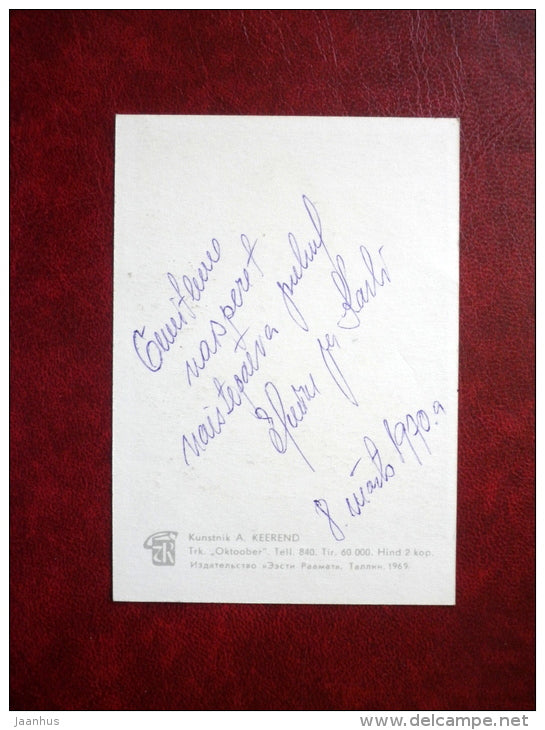 Õnnitleme
naisperet
naistepäeva puhul
ja Karli
8. märts 1970.a
Kunstnik A. KEEREND
Trk. „Oktoober". Tell. 840. Tir. 60 000. Hind 2 kop.
Издательство «Ээсти Раамат». Таллин. 1969.
Jaanhus
www.delcampe.net